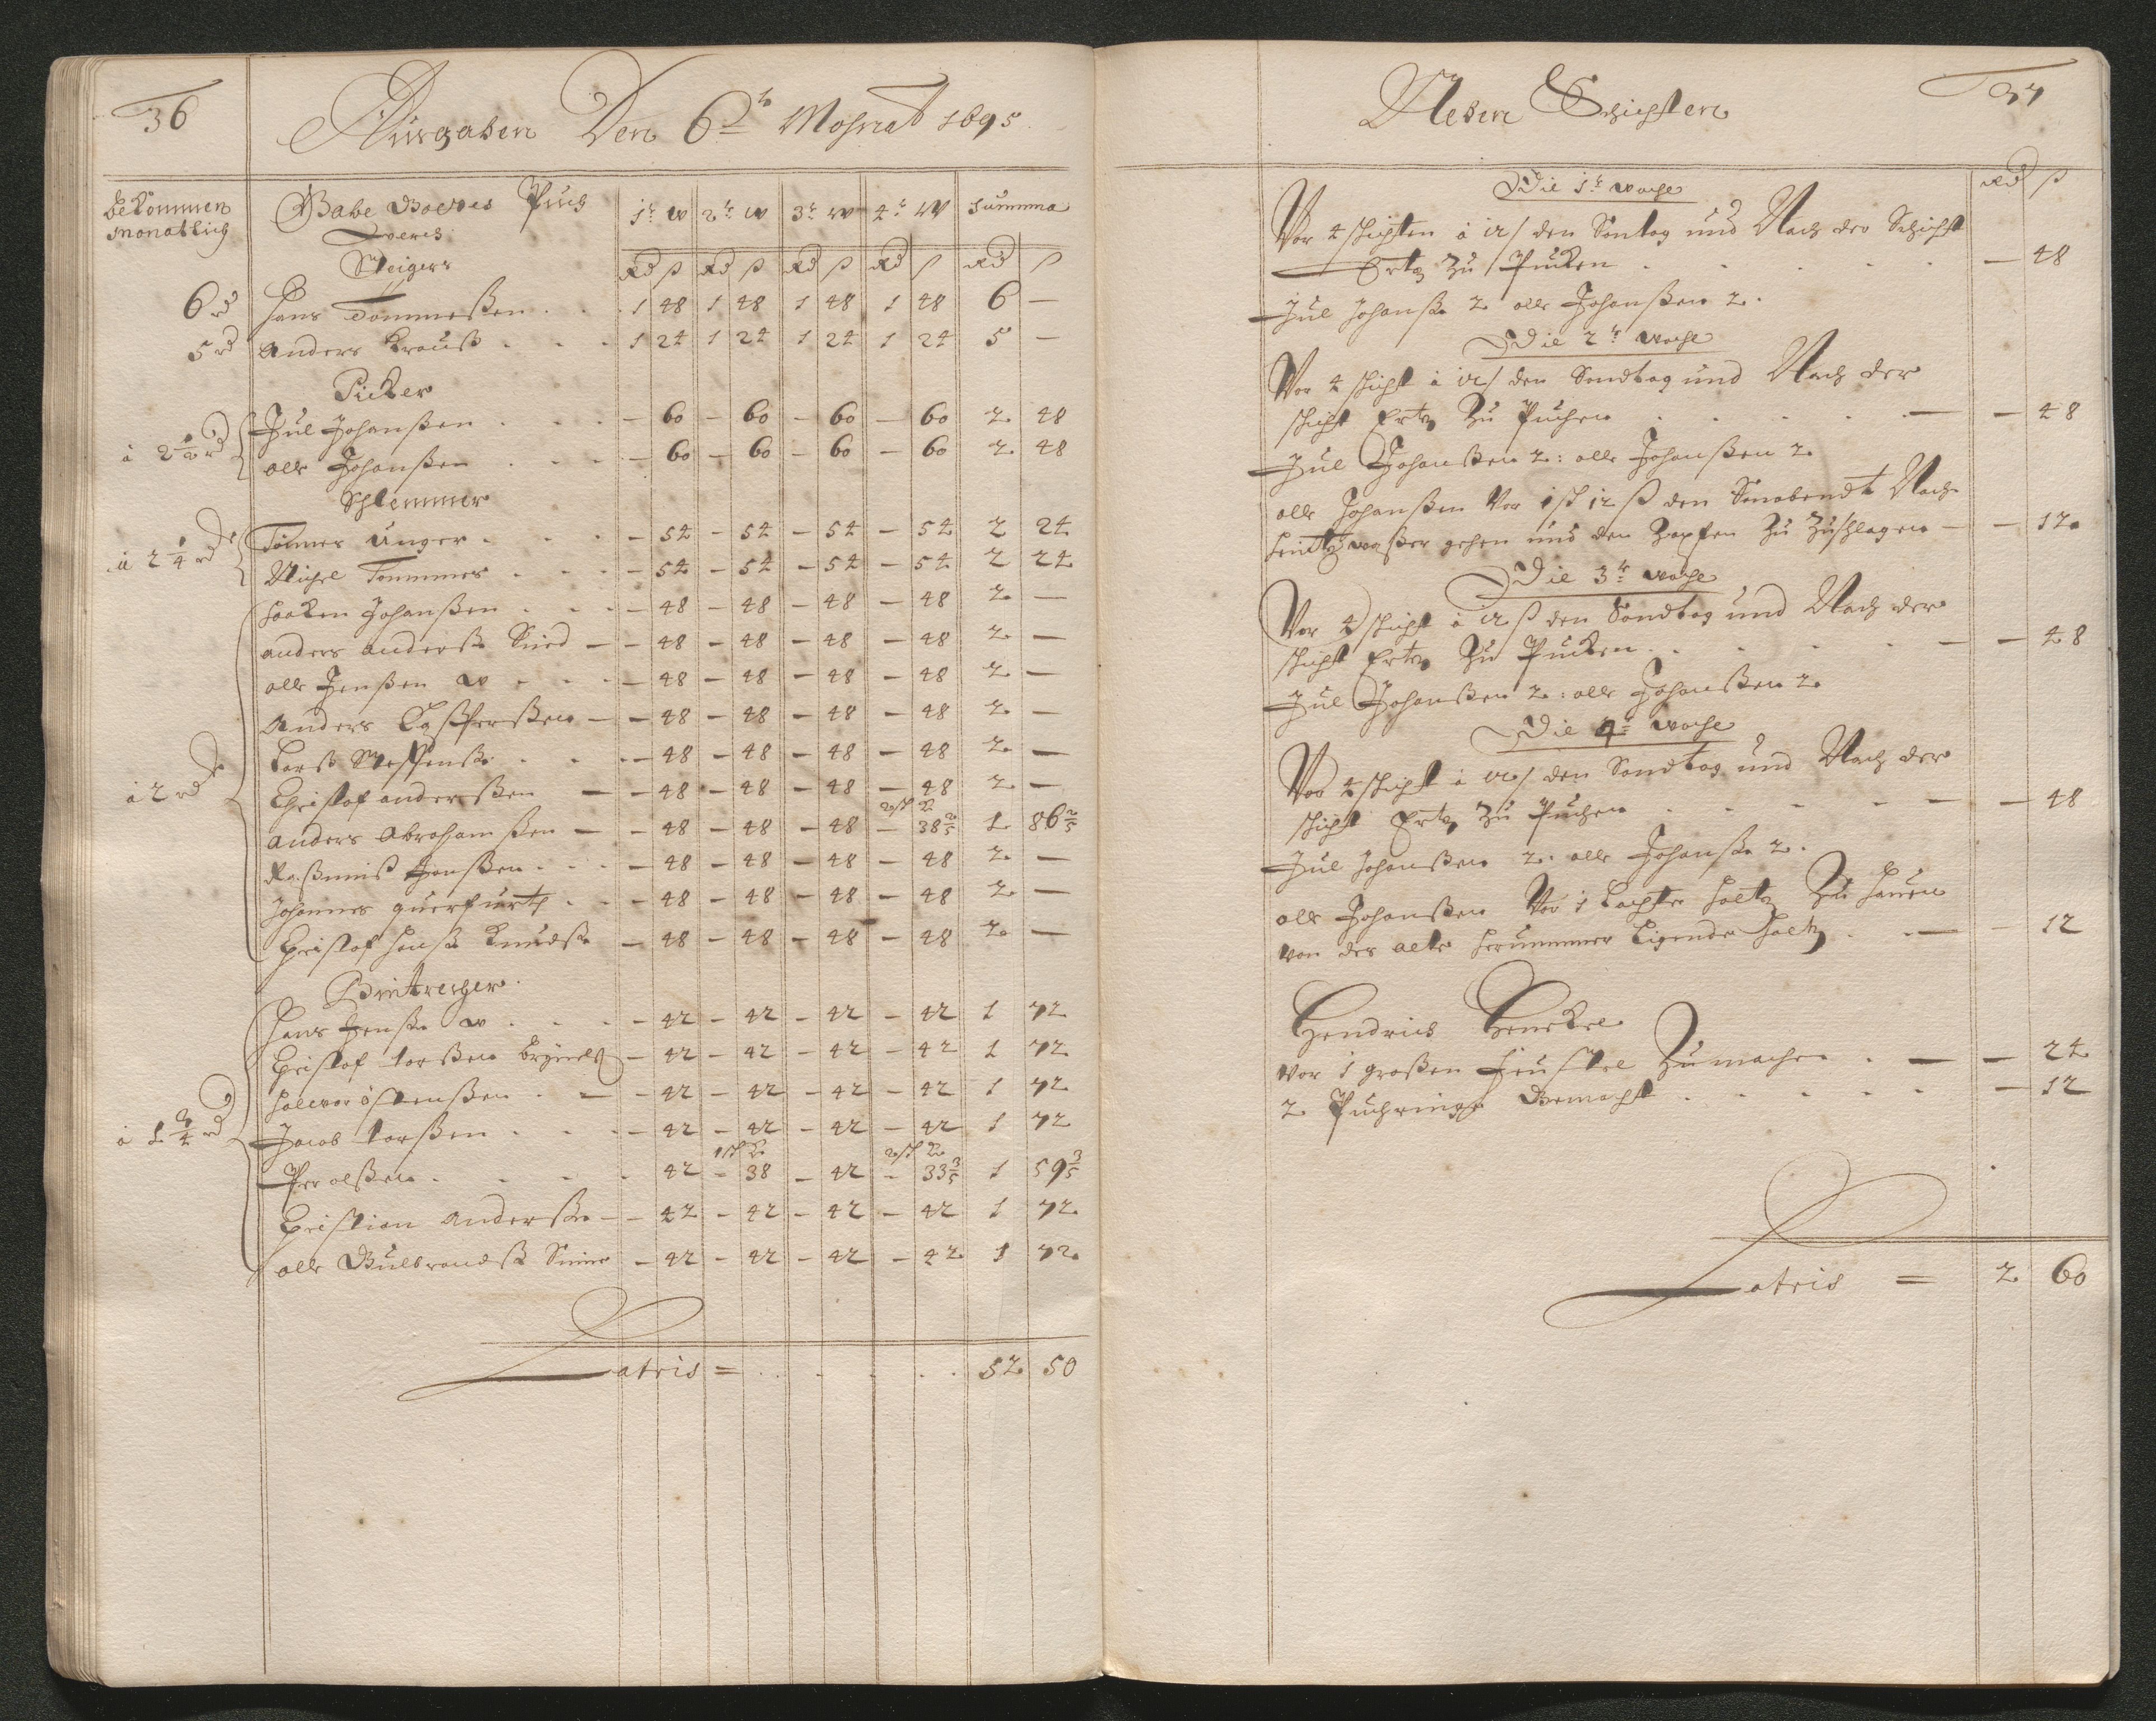 36
Ausgaben Den 6t Mohnat 1695
bekommen monatlich
Gabe Gottes Puch
1t W 2t W 3t W 4t W Summa
Steigers
Rd ß Rd ß Rd ß Rd ß Rd ß
6 rd Hans Tommeßen . . 1 48 1 48 1 48 1 48 6 —
5 rd Anders Krauß . . . 1 24 1 24 1 24 1 24 5 —
Pucker
à 2 1/2 rd
Jul Johanßen . . . — 60 — 60 — 60 — 60 2 48
olle Johanßen . . . — 60 — 60 — 60 — 60 2 48
Schlemmer
à 2 1/4 rd
Tönnes Unger . . . — 54 — 54 — 54 — 54 2 24
Michel Tommmes . . . — 54 — 54 — 54 — 54 2 24
à 2 rd
Haaken Johanßen . . . — 48 — 48 — 48 — 48 2 —
anders anderß — — 48 — 48 — 48 — 48 2 —
olle Jenßen W . . . — 48 — 48 — 48 — 48 2 —
Anders Casperßen — — 48 — 48 — 48 — 48 2 —
Larß Steffenß . . . — 48 — 48 — 48 — 48 2 —
Christof anderßen — — 48 — 48 — 48 — 48 2 —
anders Abrahamßen — — 48 — 48 — 48 — 38 2/5 1 86 2/5
Raßmuß Hanßen . . . — 48 — 48 — 48 — 48 2 —
Johannes querfurth . . — 48 — 48 — 48 — 48 2 —
Christof Hanß Knudß — 48 — 48 — 48 — 48 2 —
à 1 3/4 rd
Hans Jenß W . . . — 42 — 42 — 42 — 42 1 72
Christof Larßen — 42 — 42 — 42 — 42 1 72
Halvor ostenßen . — — 42 — 42 — 42 — 42 1 72
Jacob Larßen . . . — 42 — 42 — 42 — 42 1 72
Per olßen . . . . 42 — 38 — 42 — 33 3/5 1 59 3/5
Christian anderß — — 42 — 42 — 42 — 42 1 72
olle Gulbrandß — 42 — 42 — 42 — 42 1 72
Latris = . . . . . . 52 50
Neben Schichten
37
Rd ß
Die 1t woche
Vor 4 schichten à 12 ß den Sontag und Nach der Schicht
Ertz zu Pucken . . . . . — 48
Jul Johanß 2 olle Johanßen 2.
Die 2t woche
Vor 4 schicht à 12 ß den Sondtag und Nach der
schicht Ertz zu Puchen . . . . . — — 48
Jul Johanßen 2: olle Johanßen 2
olle Johanßen Vor 1 sch 12 ß den Sonabendt Nach
waßer gehen und den Zapfen zu Zuschlagen — — 12
Die 3t woche
Vor 4 schicht à 12 ß den Sondtag und Nach der
schicht Ertz zu Pucken . . . . . — — 48
Jul Johanßen 2: olle Johanßen 2
Die 4t woche
Vor 4 schicht à 12 ß den Sondtag und Nach der
schicht Ertz zu Puchen . . . . — — 48
Jul Johanßen 2. olle Johanß 2.
olle Johanßen Vor 1 Lachter Holtz zu Hauen
von des alte herummer ligende Holtz . . — — 12
Hendrich Henckel
vor 1 großen zumachen . — — 24
2 Puchringe Gemacht . . . . . — 12
Latris = 2 60